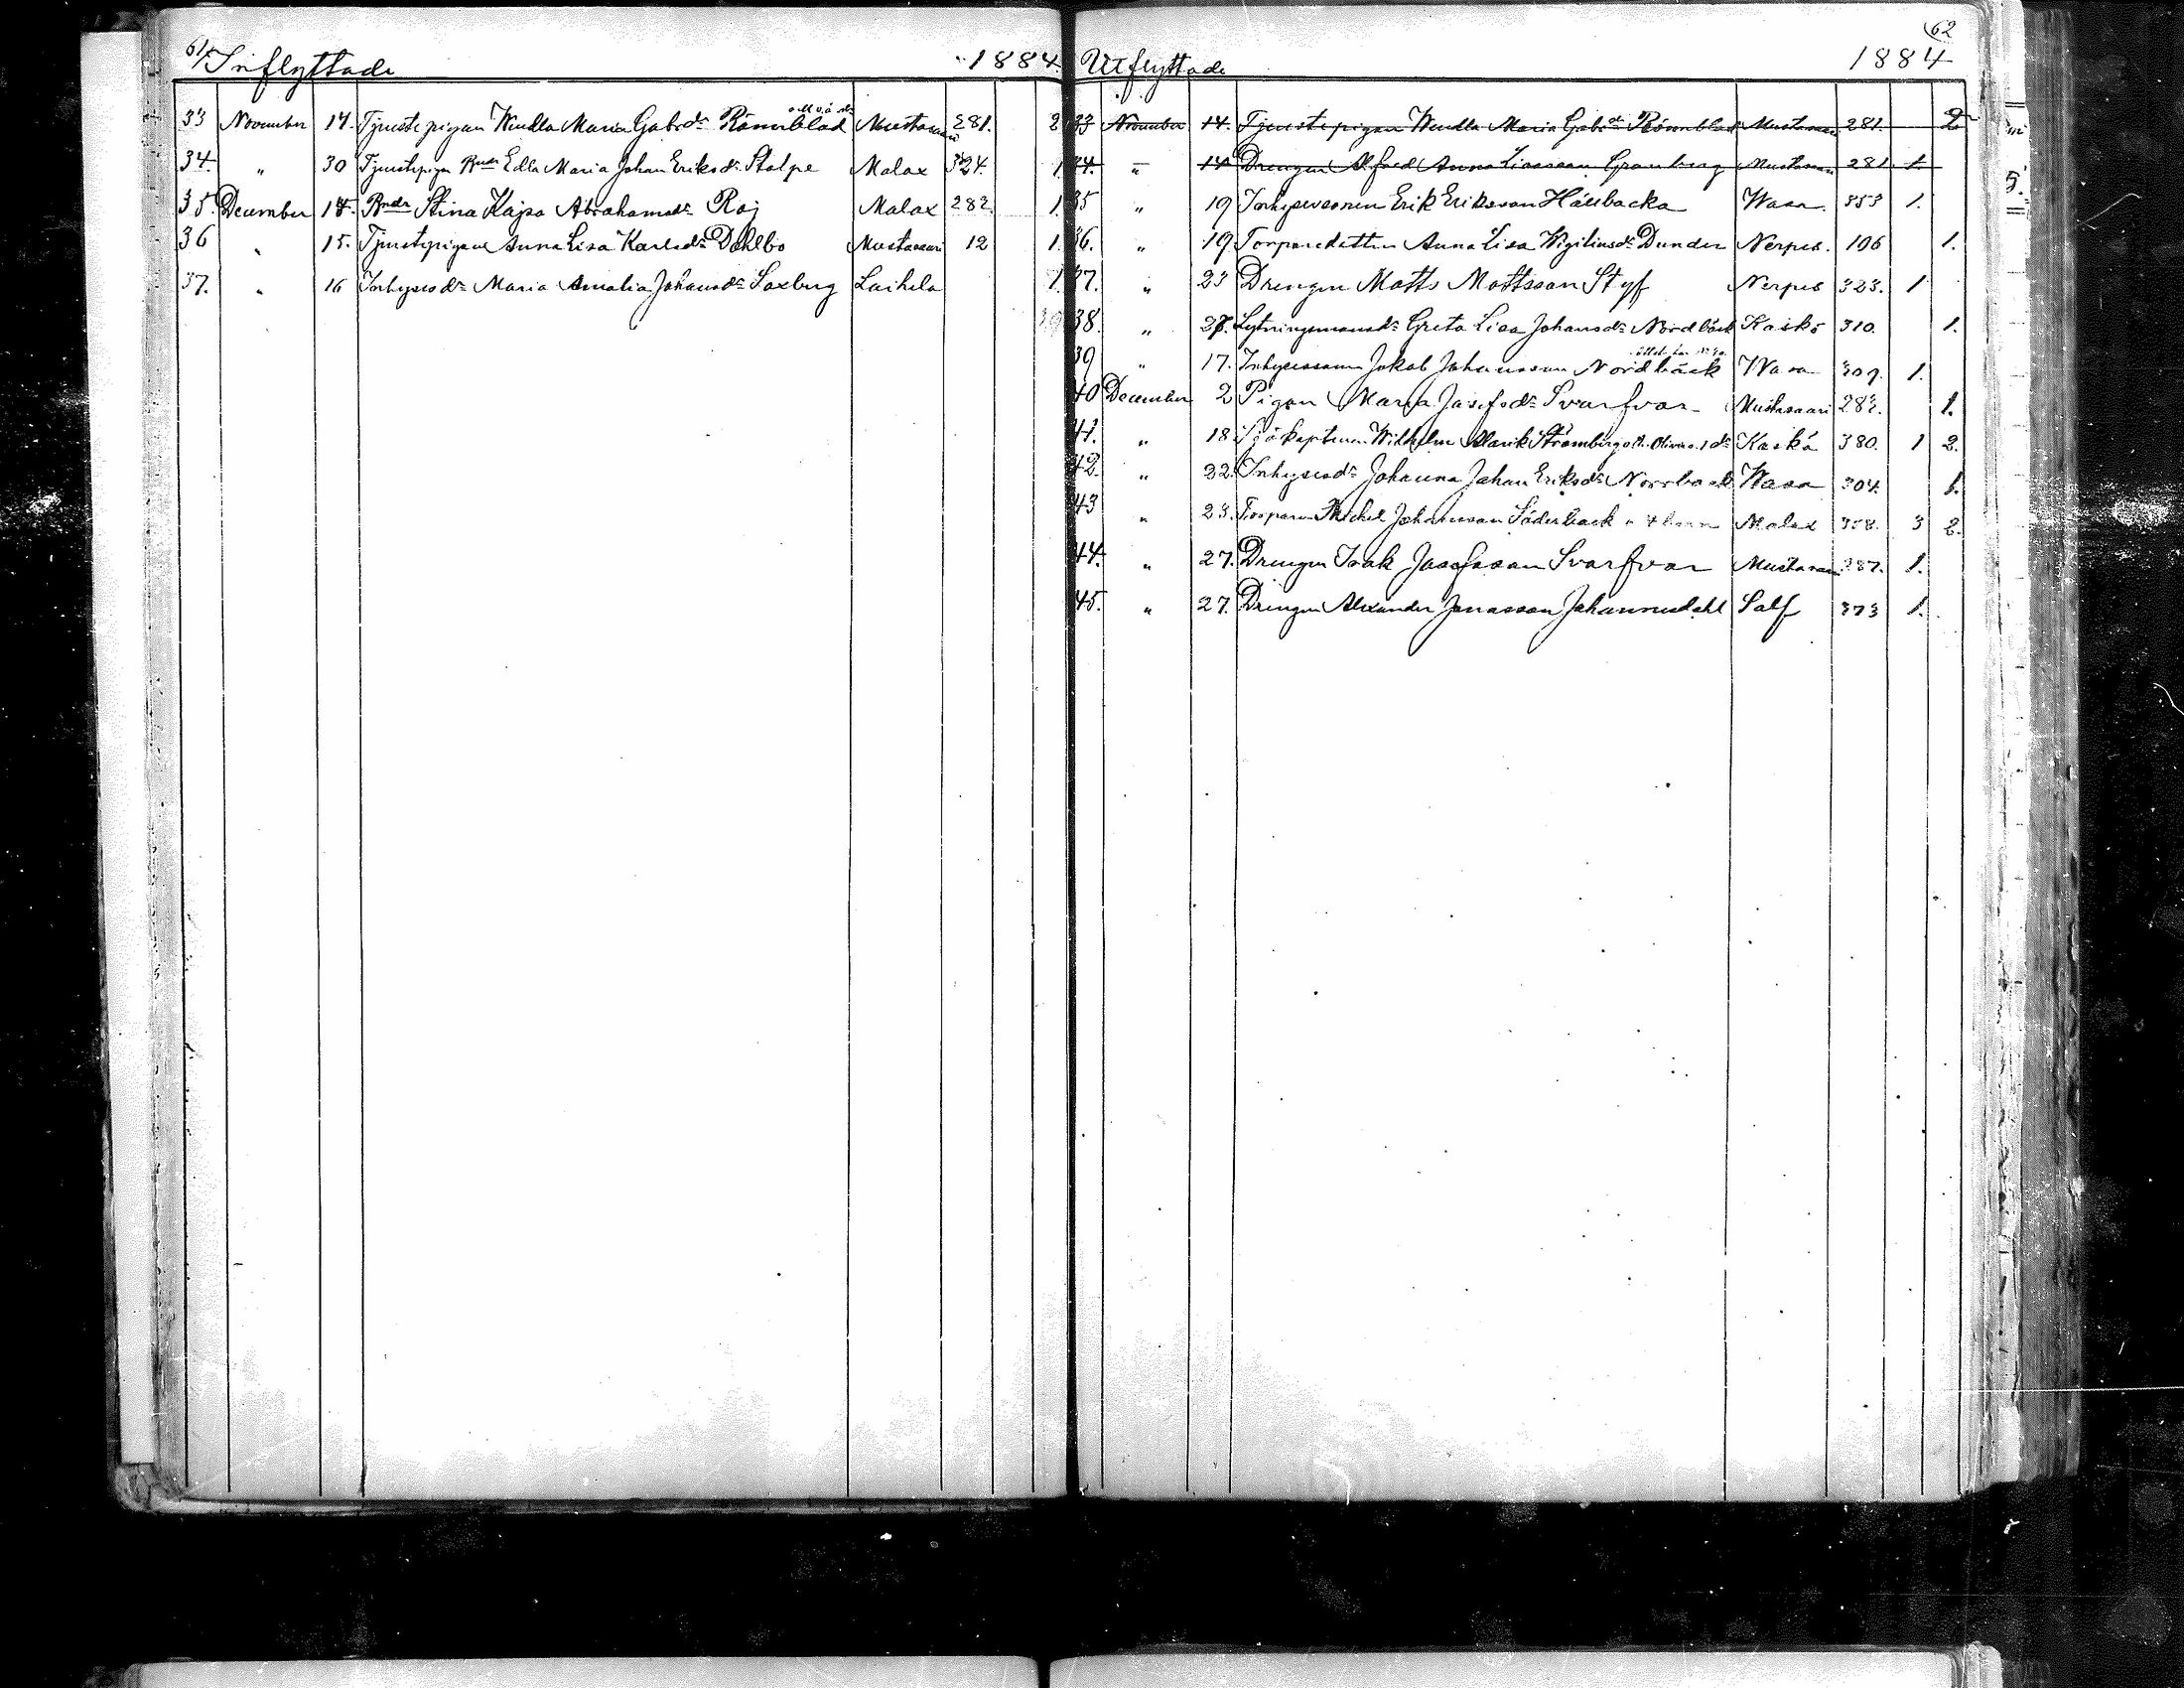 61 Inflyttade 1884
33 November 14. Tjenstepigan Wendla Maria Gabrdr Rönnblad Mustasaari 281. 2
34. " 30 Tjenstepigan Bndr Edla Maria Johan Eriksdr Stolpe Malax 324. 1
35. December 14. Bndr Stina Kajsa Abrahamsdr Raj Malax 282. 1.
36 " 15. Tjenstepigan Anna Lisa Karlsdr Dahlbo Mustasaari 12 1.
37. " 16 Inhysesdr Maria Amalia Johansdr Saxberg Laihela 1.
62
Utflyttade 1884
33 November 14. Tjenstepigan Wendla Maria Gabrdr Rönnblad Mustasaari 281. 2
34. " 14 Drengen Alfred Anna Lisasson Granberg Mustasaari 281. 1.
35 " 19 Inhysessonen Erik Eriksson Hällbacka Wasa 353 1.
36. " 19. Torparedottren Anna Lisa Wigiliusdr Dunder Nerpes. 106 1.
37. " 23 Drengen Matts Mattsson Styf Nerpes 323. 1
38. " 27. Lytningsmansdr Greta Lisa Johansdr Nordbäck Kaskö 310. 1.
39 " 17. Inhysessonen Jakob Johansson Nordbäck Wasa 309. 1.
40 December 2 Pigan Maria Josefsdr Svarfvar Mustasaari 287. 1.
41. " 18 Sjökaptenen Wilhelm Alarik Strömberg o. h. Olivia o. 1 dr Kaskö 380. 1 2.
42. " 22. Inhysesdr Johanna Johan Eriksdr Norrback Wasa 304. 1.
43 " 23. Torparen Michel Johansson Söderback Malax 358. 3 2.
44. " 27. Drengen Isak Josefsson Svarfvar Mustasaari 287. 1.
45. " 27. Drengen Alexander Jonasson Johannesdahl Solf 373 1.